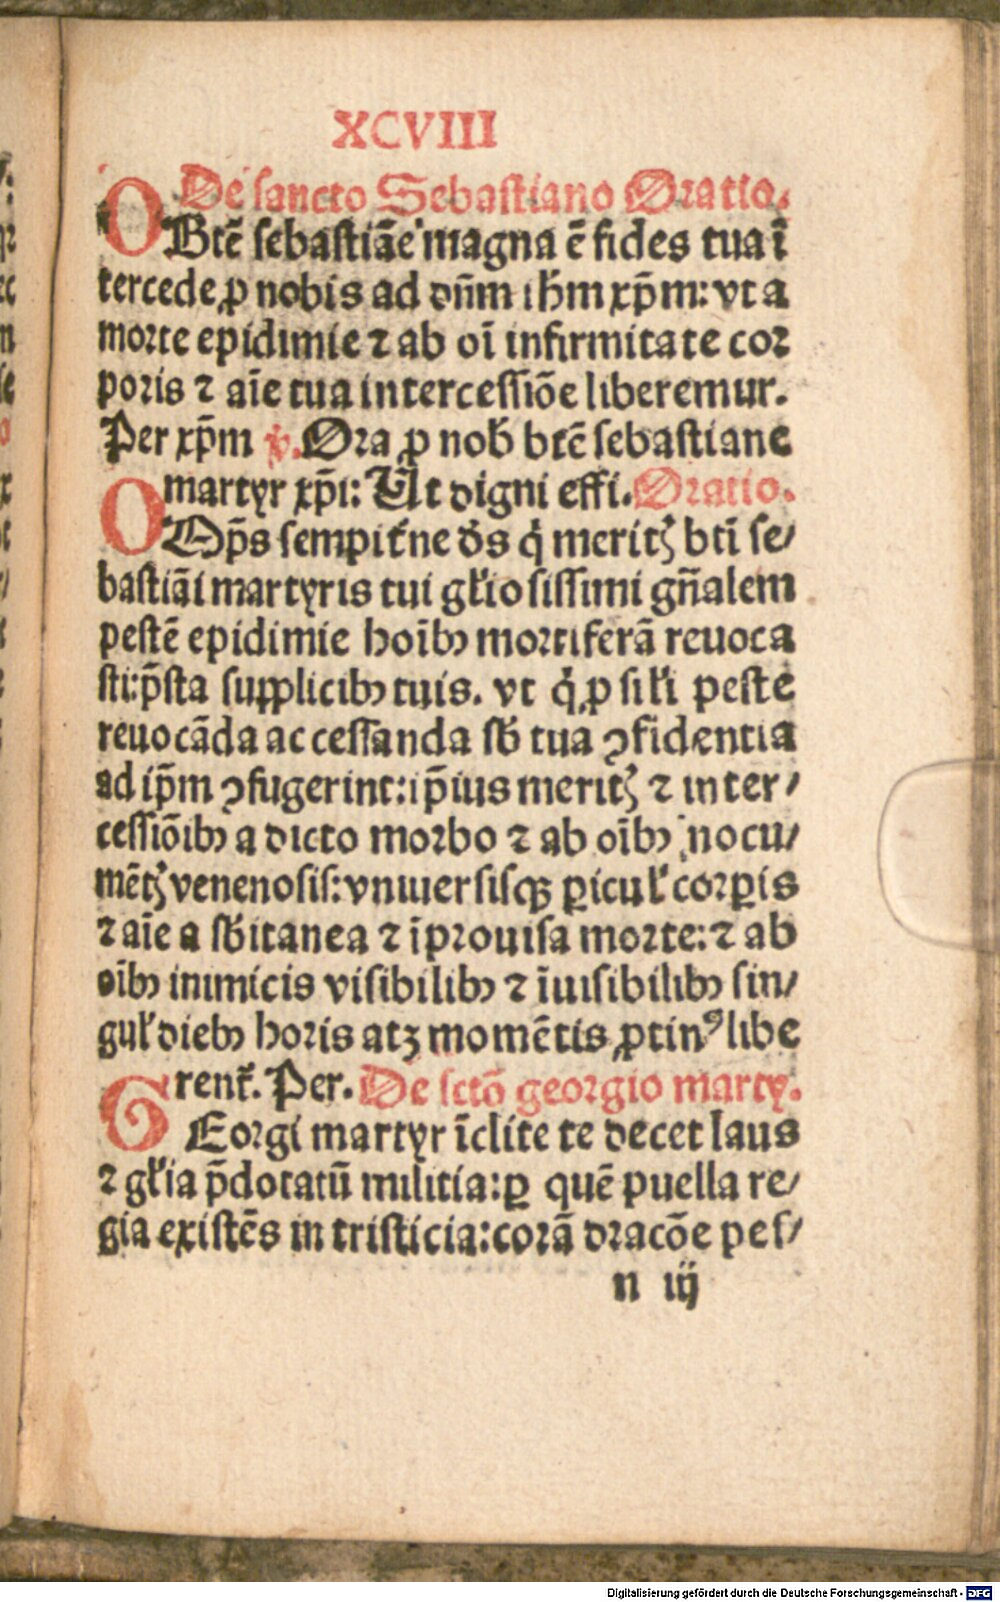 XCVIII
De sancto Sebastiano Oratio.
O Btē sebastiāe magna ē fides tua ī
tercede ꝓ nobis ad dn̄m ihm̄ xp̄m: vt a
morte epidimie ⁊ ab oī infirmitate cor
poris ⁊ aīe tua intercessiōe liberemur.
Per xp̄m ℣. Ora ꝓ nob̄ btē sebastiane
martyr xp̄i: Ut digni effi. Oratio.
O Op̄s sempit̄ne ds̄ q̇ meritꝭ btī se/
bastiāi martyris tui gl̄iosissimi gn̄alem
pestē epidimie hoībꝫ mortiferā reuoca
sti: p̄sta supplicibꝫ tuis. vt q̇ ꝓ sil̄i peste
reuocāda ac cessanda sb̄ tua ꝯfidentia
ad ip̄m ꝯfugerint: ip̄ius meritꝭ ⁊ inter/
cessiōibꝫ a dicto morbo ⁊ ab oībꝫ nocu/
mētꝭ venenosis: vniuersisqꝫ ꝑicul̄ corꝑis
⁊ aīe a sb̄itanea ⁊ īprouisa morte: ⁊ ab
oībꝫ inimicis visibilibꝫ ⁊ īuisibilibꝫ sin/
gul̄ diebꝫ horis atqꝫ momētis ꝓtinꝰ libe
rent̄. Per. De sctō georgio marty.
G Eorgi martyr īclite te decet laus
⁊ gl̄ia p̄dotatū militia: ꝑ quē puella re/
gia existēs in tristicia: corā dracōe pes/
n iij
Digitalisierung gefördert durch die Deutsche Forschungsgemeinschaft - DFG